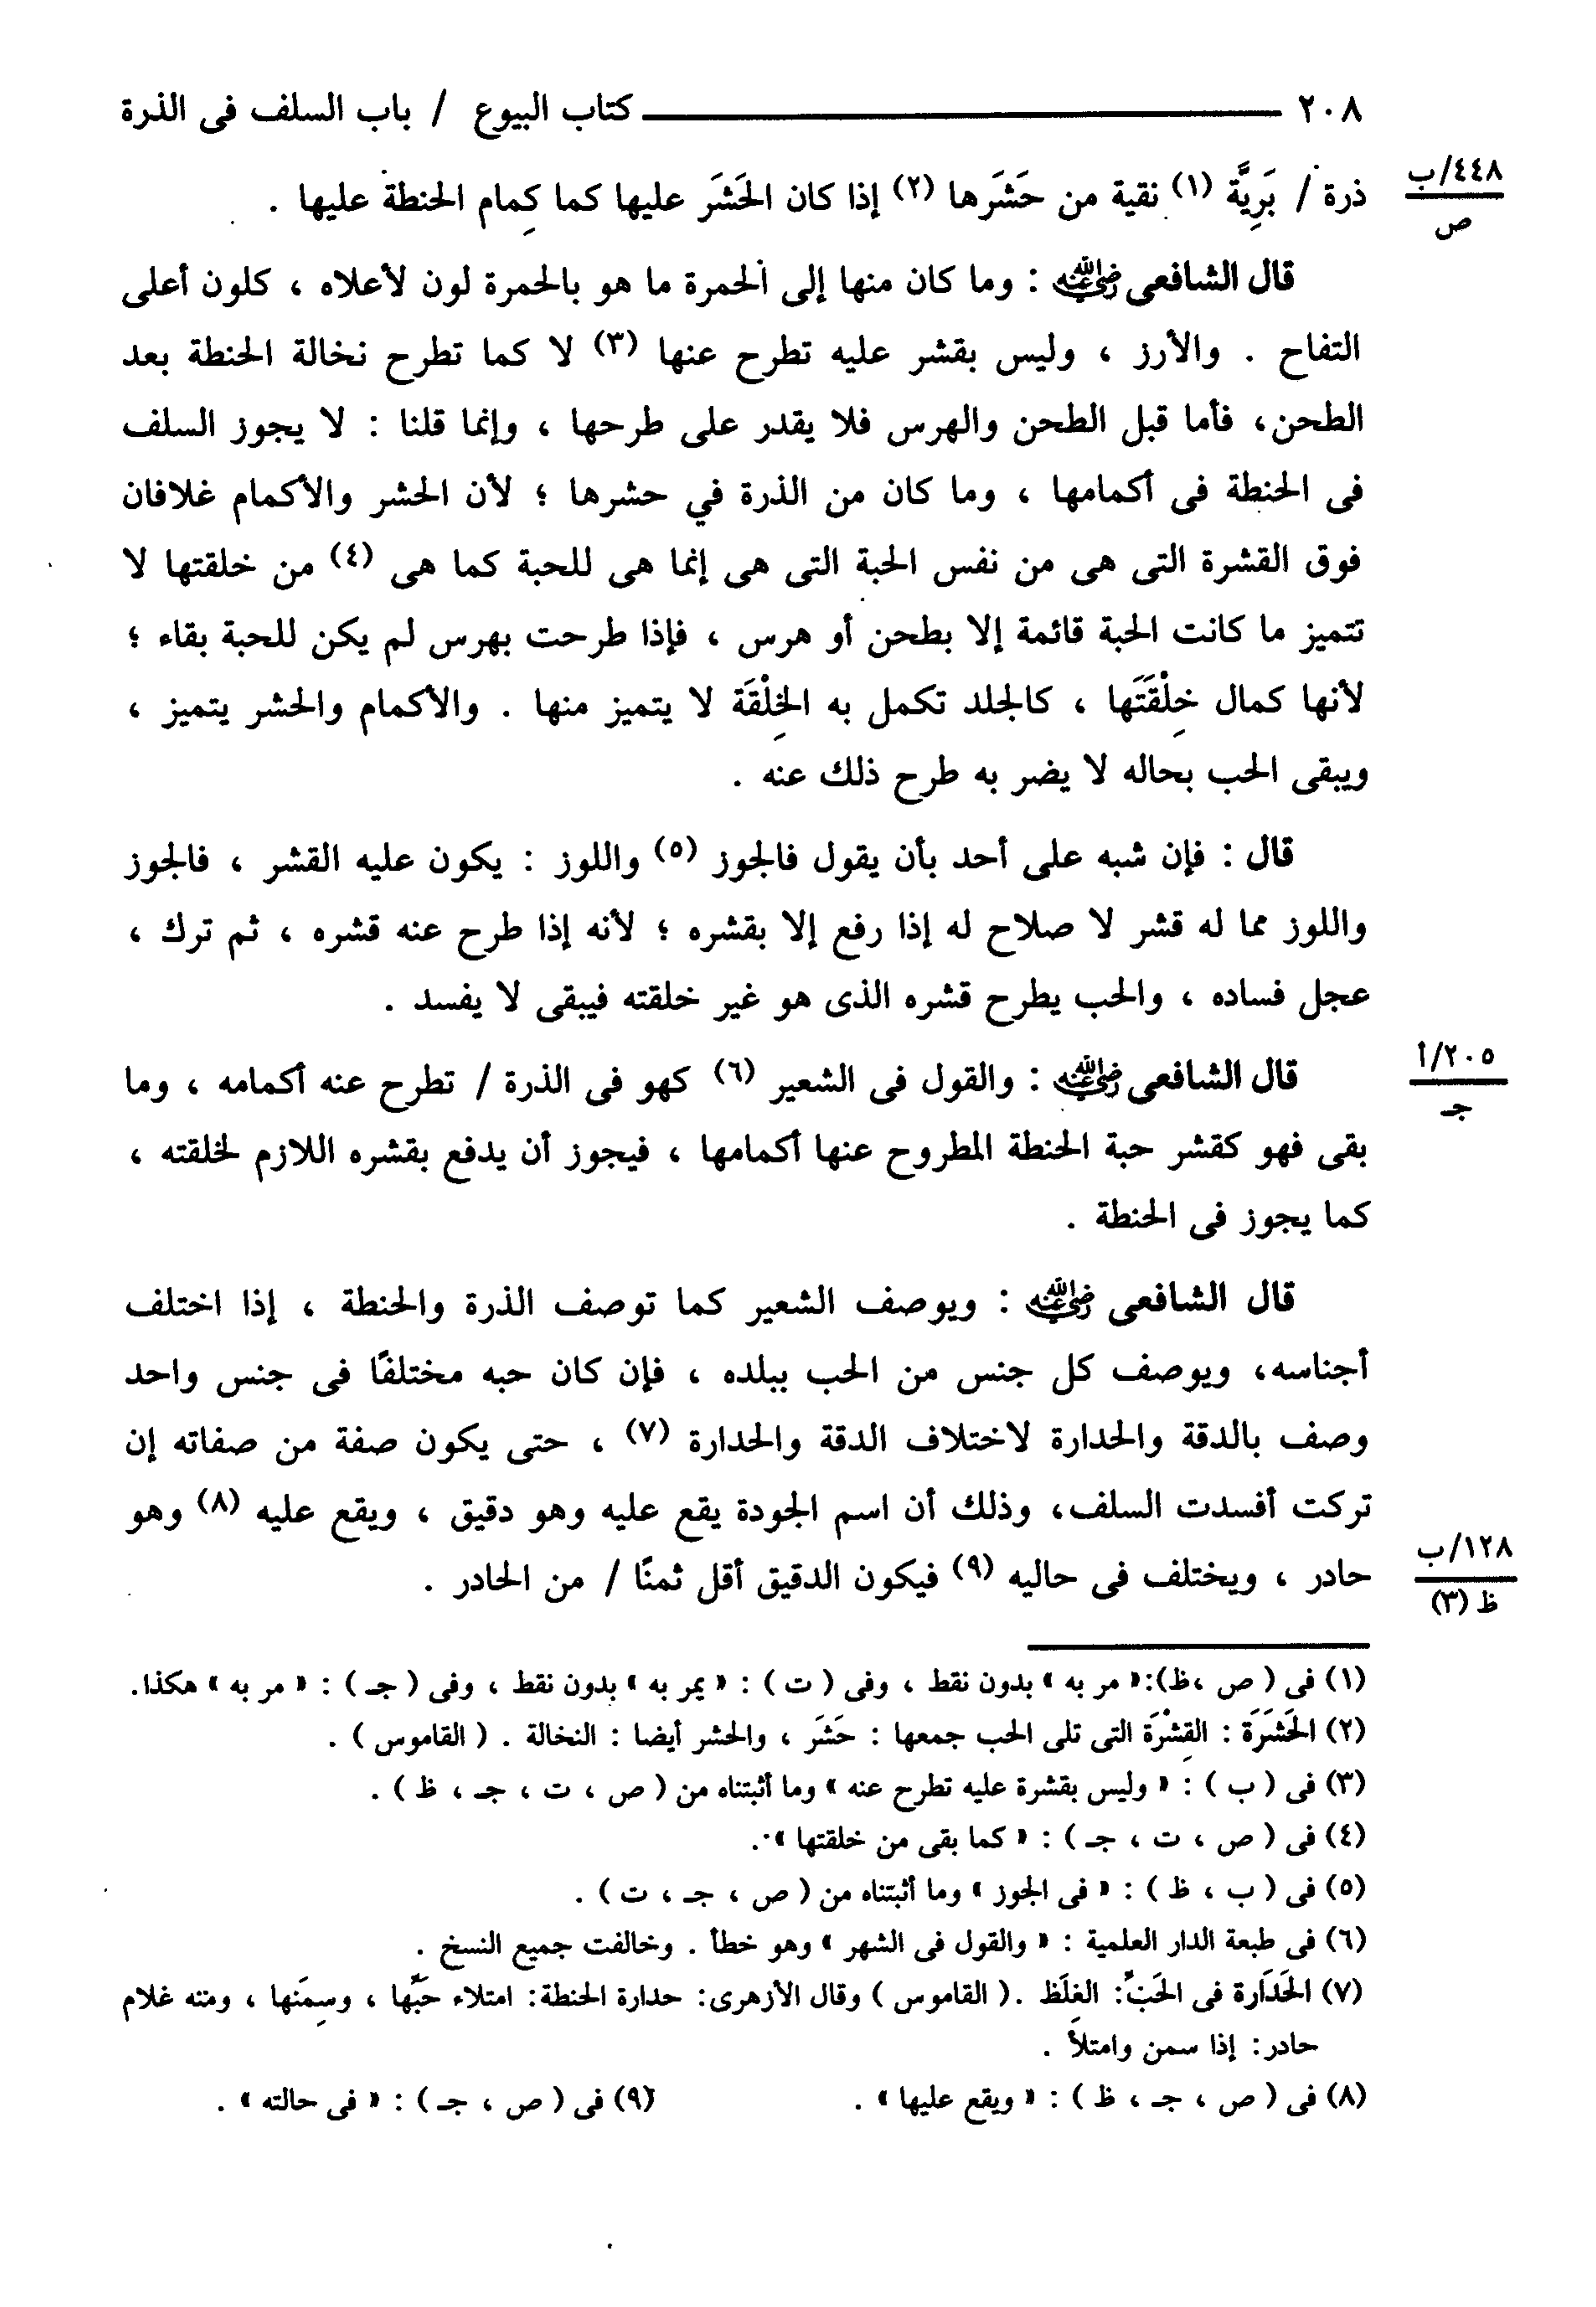 ٢٠٨ ــــــــــــــ كتاب البيوع / باب السلف فى الذرة
٤٤٨/ب
ص
ذرة / بَرِيَّة (١) نقية من حَشَرها (٢) إذا كان الحَشَر عليها كما كِمام الحنطة عليها .
قال الشافعى رضي الله عنه : وما كان منها إلى الحمرة ما هو بالحمرة لون لأعلاه ، كلون أعلى
التفاح . والأرز ، وليس بقشر عليه تطرح عنها (٣) لا كما تطرح نخالة الحنطة بعد
الطحن، فأما قبل الطحن والهرس فلا يقدر على طرحها ، وإنما قلنا : لا يجوز السلف
فى الحنطة فى أكمامها ، وما كان من الذرة في حشرها ؛ لأن الحشر والأكمام غلافان
فوق القشرة التى هى من نفس الحبة التى هى إنما هى للحبة كما هى (٤) من خلقتها لا
تتميز ما كانت الحبة قائمة إلا بطحن أو هرس ، فإذا طرحت بهرس لم يكن للحبة بقاء ؛
لأنها كمال خِلْقَتَها ، كالجلد تكمل به الخِلْقَة لا يتميز منها . والأكمام والحشر يتميز ،
ويبقى الحب بحاله لا يضر به طرح ذلك عنه .
قال : فإن شبه على أحد بأن يقول فالجوز (٥) واللوز : يكون عليه القشر ، فالجوز
واللوز مما له قشر لا صلاح له إذا رفع إلا بقشره ؛ لأنه إذا طرح عنه قشره ، ثم ترك ،
عجل فساده ، والحب يطرح قشره الذى هو غير خلقته فيبقى لا يفسد .
٢٠٥/أ
جـ
قال الشافعى رضي الله عنه : والقول فى الشعير (٦) كهو فى الذرة / تطرح عنه أكمامه ، وما
بقى فهو كقشر حبة الحنطة المطروح عنها أكمامها ، فيجوز أن يدفع بقشره اللازم لخلقته ،
كما يجوز فى الحنطة .
قال الشافعى رضي الله عنه : ويوصف الشعير كما توصف الذرة والحنطة ، إذا اختلف
أجناسه، ويوصف كل جنس من الحب ببلده ، فإن كان حبه مختلفًا فى جنس واحد
وصف بالدقة والحدارة لاختلاف الدقة والحدارة (٧) ، حتى يكون صفة من صفاته إن
تركت أفسدت السلف، وذلك أن اسم الجودة يقع عليه وهو دقيق ، ويقع عليه (٨) وهو
١٢٨/ب
ظ (٣)
حادر ، ويختلف فى حاليه (٩) فيكون الدقيق أقل ثمنًا / من الحادر .
(١) فى ( ص ،ظ):« مر به » بدون نقط ، وفى ( ت ) : « يمر به » بدون نقط ، وفى ( جـ ) : « مر به » هكذا.
(٢) الحَشَرَة : القِشْرَة التى تلى الحب جمعها : حَشَر ، والحشر أيضا : النخالة . ( القاموس ) .
(٣) فى ( ب ) : « وليس بقشرة عليه تطرح عنه » وما أثبتناه من ( ص ، ت ، جـ ، ظ ) .
(٤) فى ( ص ، ت ، جـ ) : « كما بقى من خلقتها » .
(٥) فى ( ب ، ظ ) : « فى الجوز » وما أثبتناه من ( ص ، جـ ، ت ) .
(٦) فى طبعة الدار العلمية : « والقول فى الشهر » وهو خطأ . وخالفت جميع النسخ .
(٧) الحَدَارة فى الحَبِّ: الغِلَظ .( القاموس ) وقال الأزهرى: حدارة الحنطة: امتلاء حَبَّها ، وسِمَنها ، ومنه غلام
حادر: إذا سمن وامتلأ .
(٨) فى ( ص ، جـ ، ظ ) : « ويقع عليها » . (٩) فى ( ص ، جـ ) : « فى حالته » .